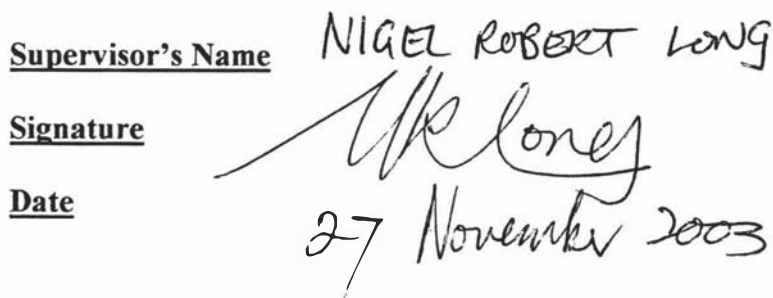 Supervisor's Name NIGEL ROBERT LONG
Signature NR Long
Date 27 November 2003